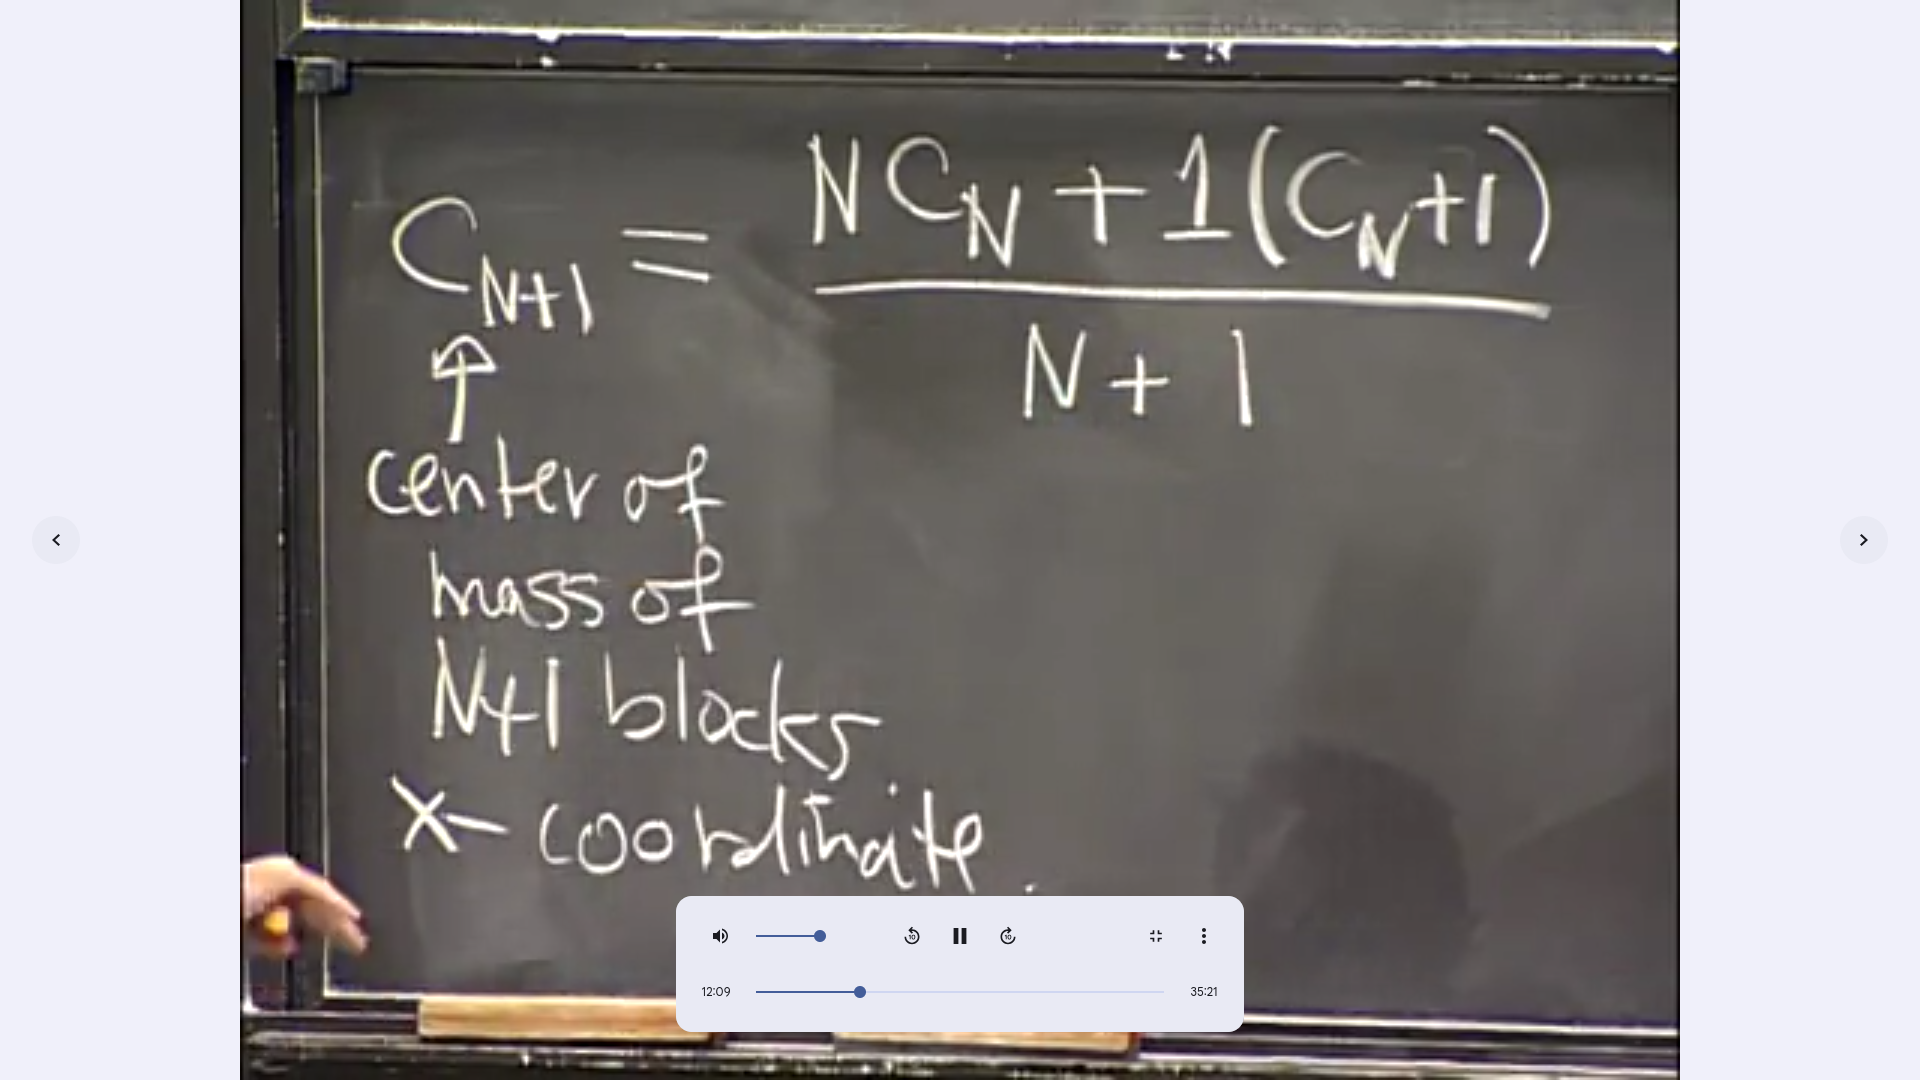 C_{N+1} = \frac{N C_N + 1(C_N + 1)}{N + 1}
↑
center of
mass of
N+1 blocks
x-coordinate.
10
10
12:09
35:21